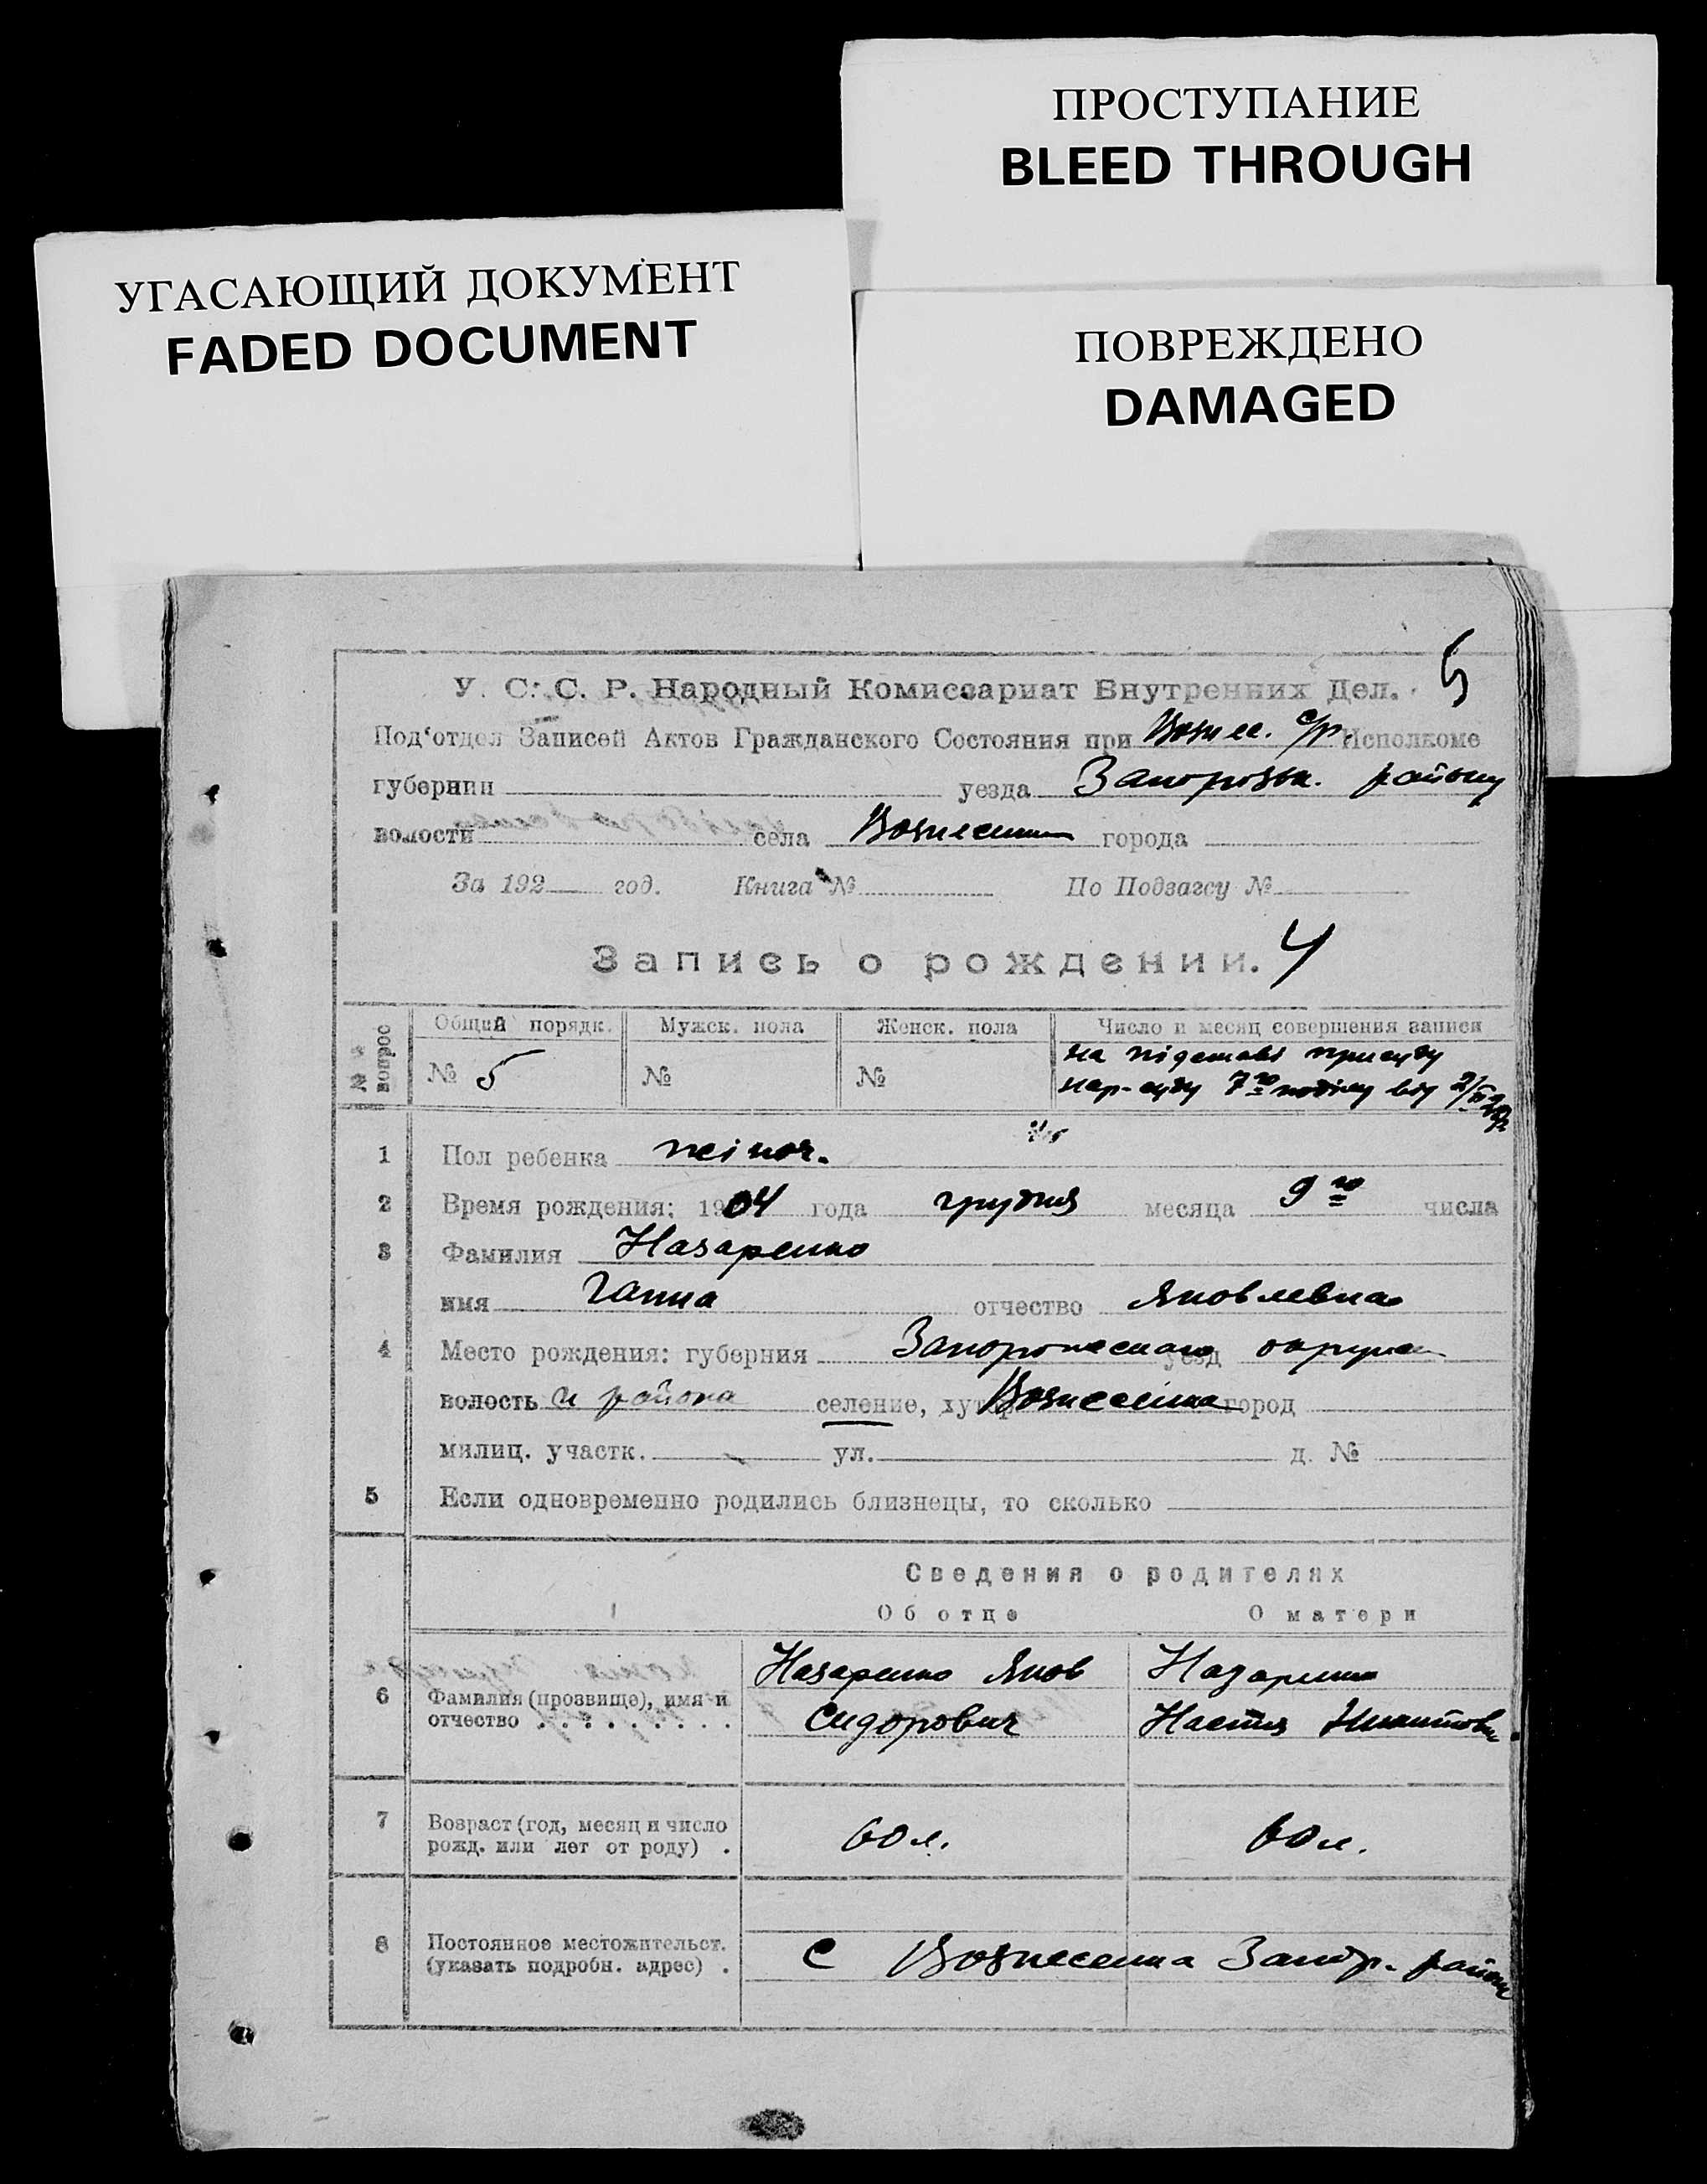 ПРОСТУПАНИЕ
BLEED THROUGH
УГАСАЮЩИЙ ДОКУМЕНТ
FADED DOCUMENT
ПОВРЕЖДЕНО
DAMAGED
5
У. С. С. Р. Народный Комиссариат Внутренних Дел.
Под‘отдел Записей Актов Гражданского Состояния при Вознес. с/р. Исполкоме
губернии уезда Запорозьк. району
волости села Вознесенка города
За 192 год. Книга № По Подзагсу №
Запись о рождении. 4
№№ вопрос
Общий порядк. Мужск. пола Женск. пола Число и месяц совершения записи
№ 5 № № на підставі присуду
нар-суду 7го від
1 Пол ребенка жіноч.
2 Время рождения: 1904 года грудня месяца 9го числа
3 Фамилия Назаренко
имя Ганна отчество Яковлевна
4 Место рождения: губерния Запорожского уезд округа
волость и района селение, хутор Вознесенка город
милиц. участк. ул. д. №
5 Если одновременно родились близнецы, то сколько
Сведения о родителях
Об отце О матери
6 Фамилия (прозвище), имя и отчество Назаренко Яков Назаренко
Сидорович Настя
7 Возраст (год, месяц и число рожд. или лет от роду) 60 л. 60 л.
8 Постоянное местожительст. (указать подробн. адрес) С Вознесенка Запор. району